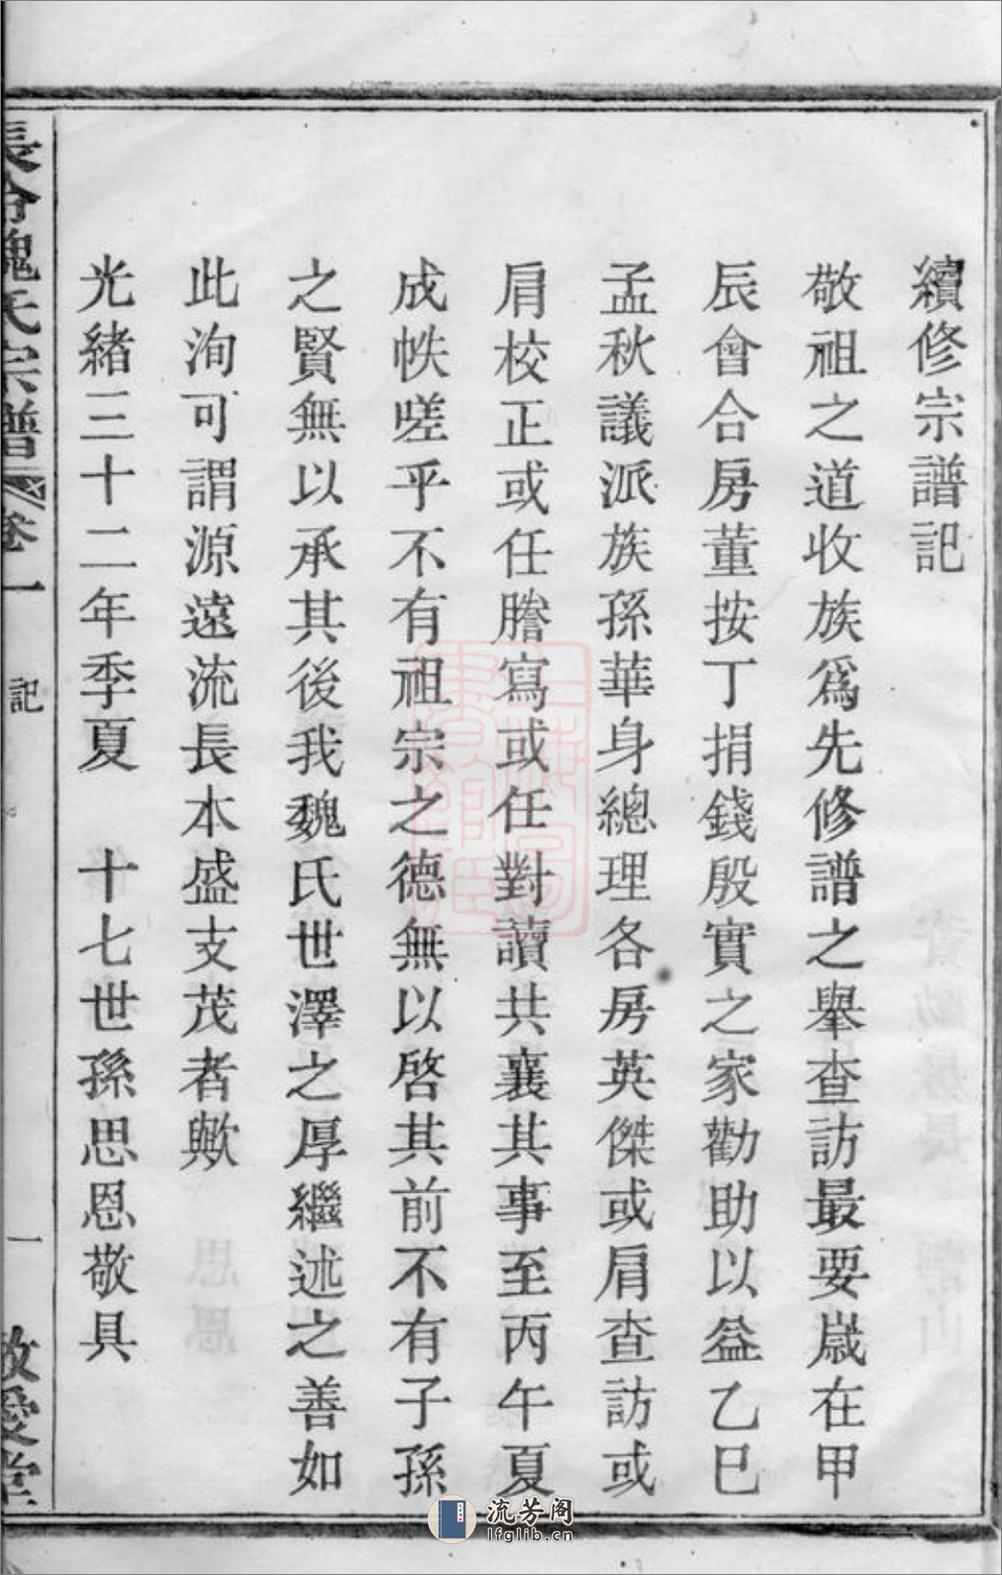 續修宗譜記
敬祖之道收族爲先修譜之舉查訪最要歲在甲
辰會合房董按丁捐錢殷實之家勸助以益乙巳
孟秋議派族孫華身總理各房英傑或肩查訪或
肩校正或任謄寫或任對讀共襄其事至丙午夏
成帙嗟乎不有祖宗之德無以啓其前不有子孫
之賢無以承其後我魏氏世澤之厚繼述之善如
此洵可謂源遠流長本盛支茂者歟
光緒三十二年季夏　十七世孫思恩敬具
魏氏宗譜 卷一 記 一 敬愛堂
流芳阁
lfglib.cn